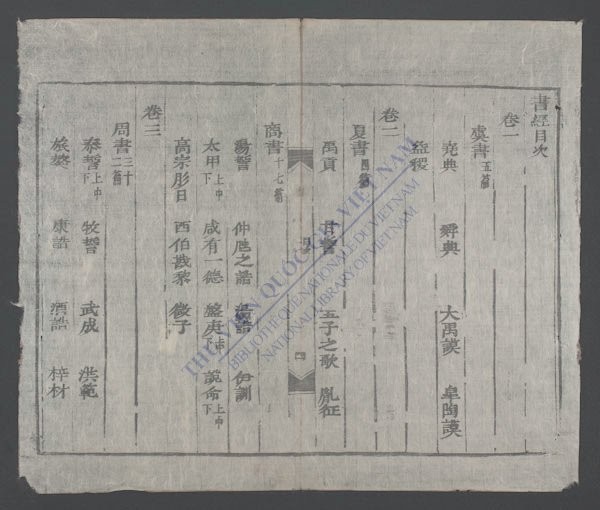 書經目次
卷一
虞書五篇
堯典 舜典 大禹謨 皐陶謨
益稷
卷二
夏書四篇
禹貢 甘誓 五子之歌 胤征
四
商書十七篇
湯誓 仲虺之誥 湯誥 伊訓
太甲上中下 咸有一德 盤庚上中下 說命上中下
高宗肜日 西伯戡黎 微子
卷三
周書三十二篇
泰誓上中下 牧誓 武成 洪範
旅獒 康誥 酒誥 梓材
THƯ VIỆN QUỐC GIA VIỆT NAM
BIBLIOTHEQUE NATIONALE DU VIETNAM
NATIONAL LIBRARY OF VIETNAM